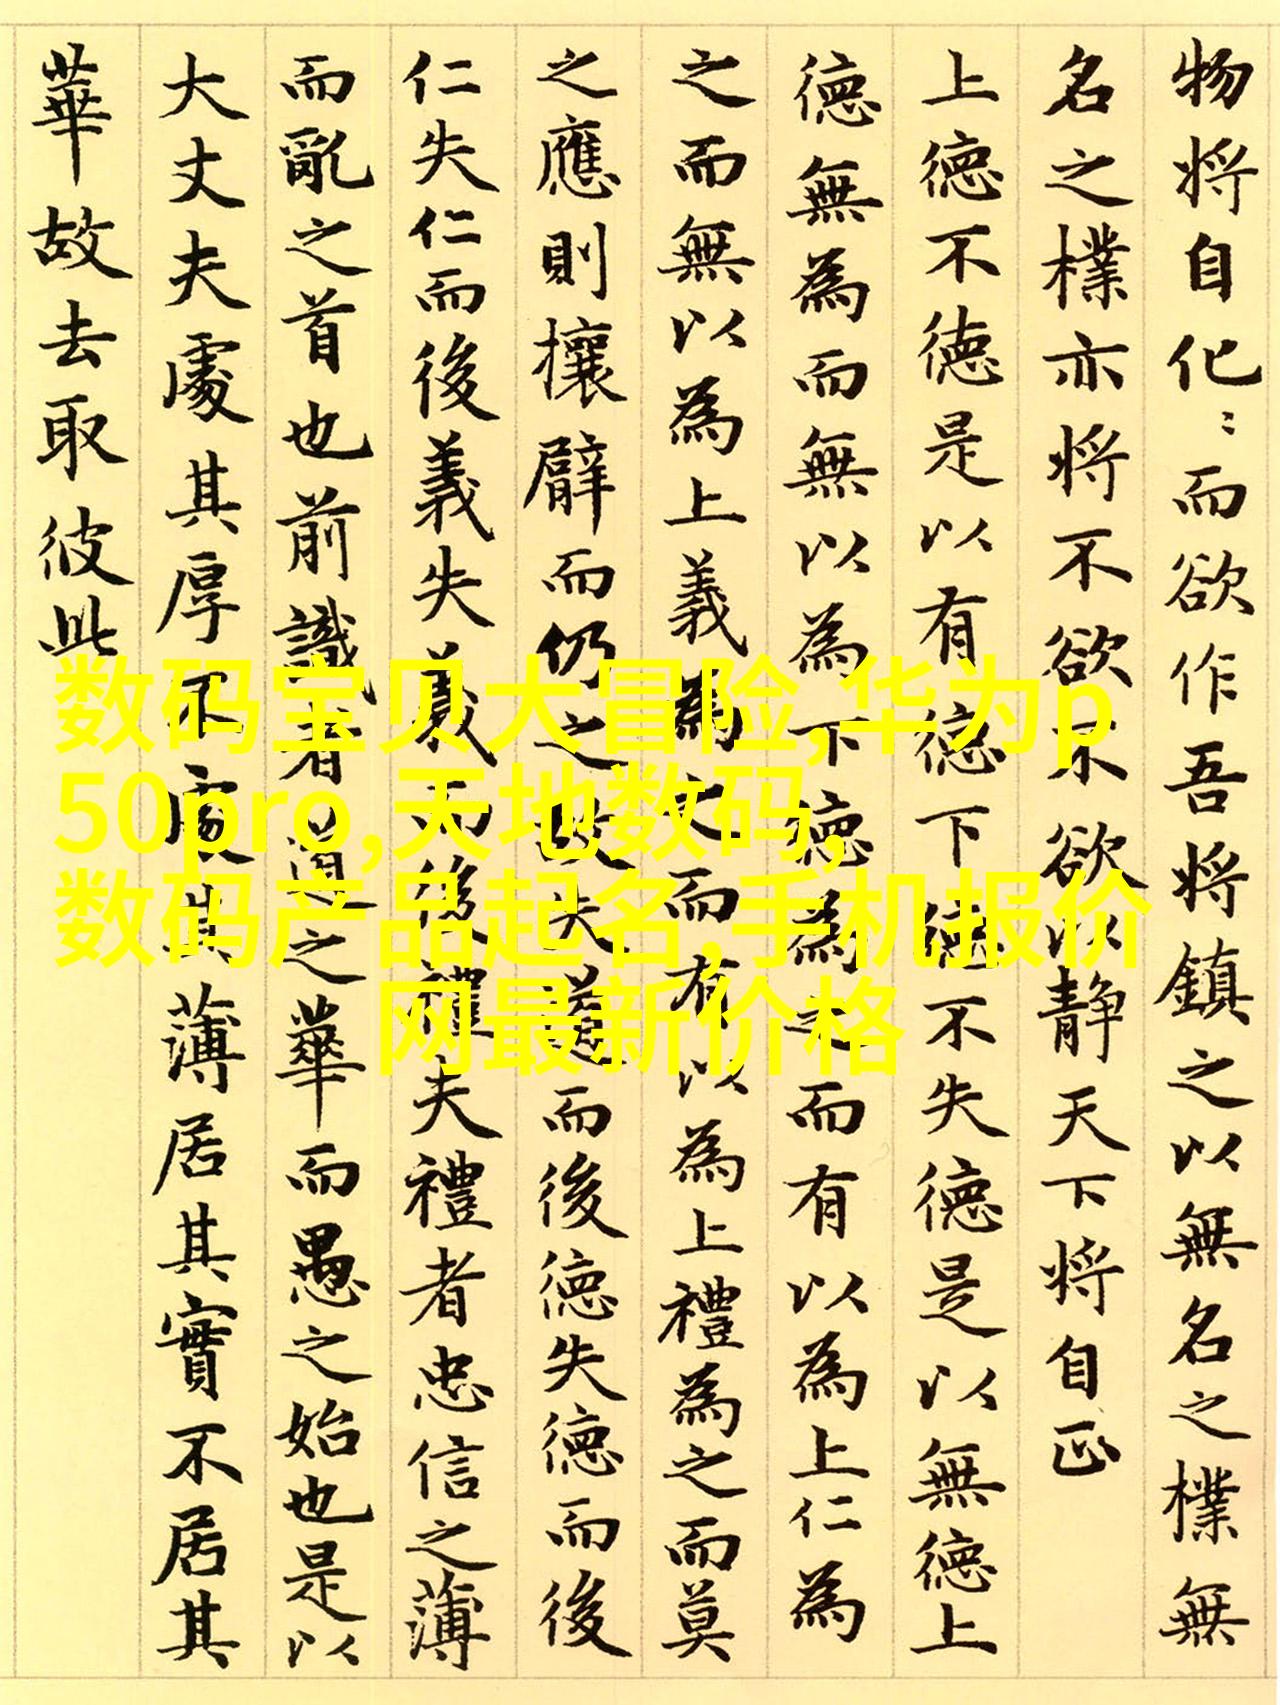 物将自化〻而欲作吾将鎮之以無名之樸無
名之樸亦将不欲不欲以静天下将自正
上徳不徳是以有徳下徳不失徳是以無徳上
徳無為而無以為下徳為之而有以為上仁為
之而無以為上義為之而有以為上禮為之而莫
之應則攘臂而仍之故失道而後徳失徳而後
仁失仁而後義失義而後禮夫禮者忠信之薄
而亂之首也前識者道之華而愚之始也是以
大丈夫處其厚不處其薄居其實不居其
華故去取彼此
数码宝贝大冒险,华为p
50pro,天地数码,
数码产品起名,手机报价
网最新价格